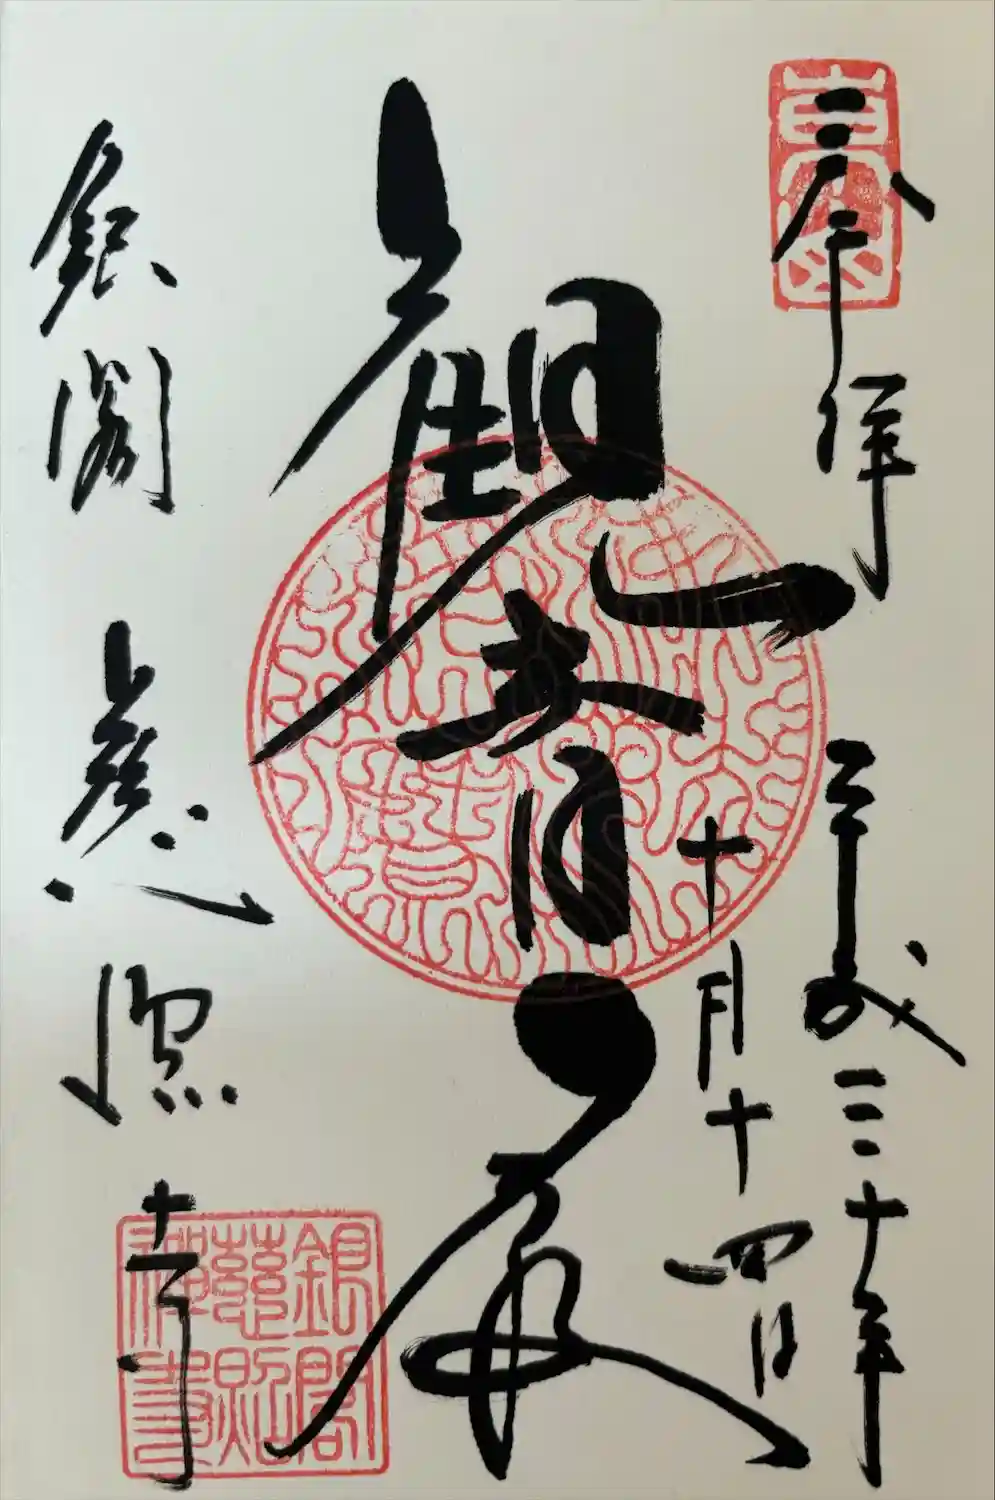 奉拝
平成三十年
十月十四日
觀音殿
銀閣
慈照寺
銀閣
慈照
禅寺